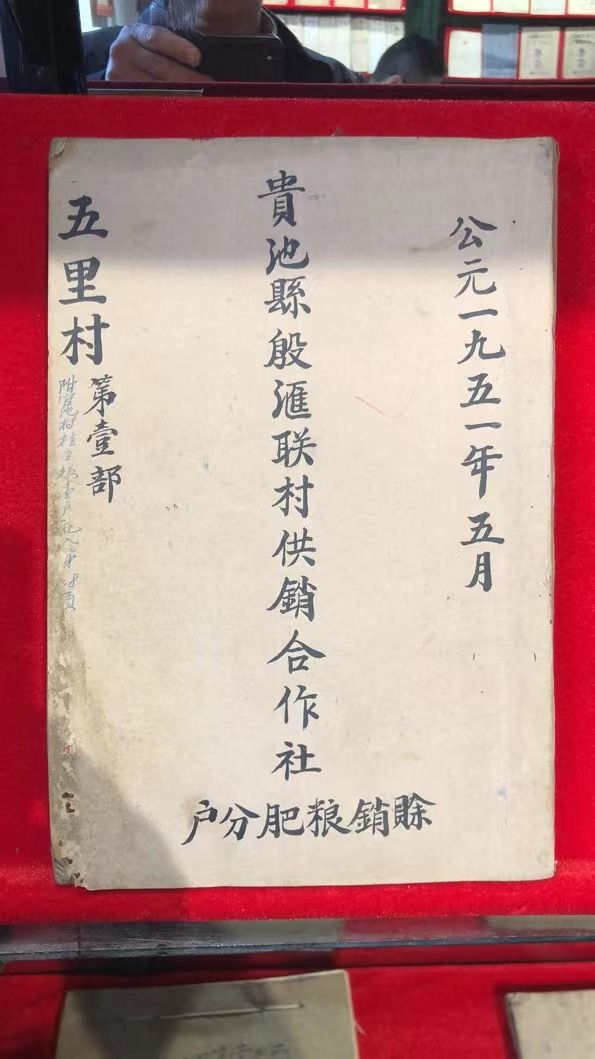 公元一九五一年五月
貴池縣殷滙联村供銷合作社
賖銷粮肥分户
五里村
第壹部